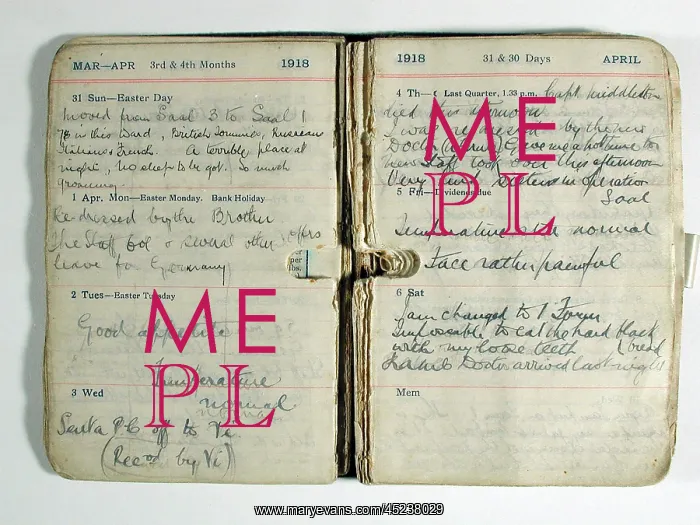 MAR—APR 3rd & 4th Months 1918
31 Sun—Easter Day
Moved from Saal 3 to Saal 1
78 in this Ward, British Sommies, Russians
Italians & French. A terrible place at
night, no sleep to be got. So much
groaning.
1 Apr. Mon—Easter Monday. Bank Holiday
Re-dressed by the Brother
The Staff Col & several other offrs
leave for Germany
2 Tues—Easter Tuesday
Good appetite
Temperature
normal
3 Wed
Sent a P.C. off to Vi
(Rec'd by Vi)
per
lbs.
1918 31 & 30 Days APRIL
4 Th— Last Quarter, 1.33 p.m. Capt Middleton
died this afternoon
I was re dressed by the new
Doctor gave me a hot
new Staff took over this afternoon
Very kind Sisters in operation
Saal
5 Fri—Dividends due
Temperature normal
Face rather painful
6 Sat
I am changed to 1 Form
Impossible to eat the hard black
with my loose teeth (bread
Doctor arrived last night
Mem
ME
PL
ME
PL
www.maryevans.com/45238029